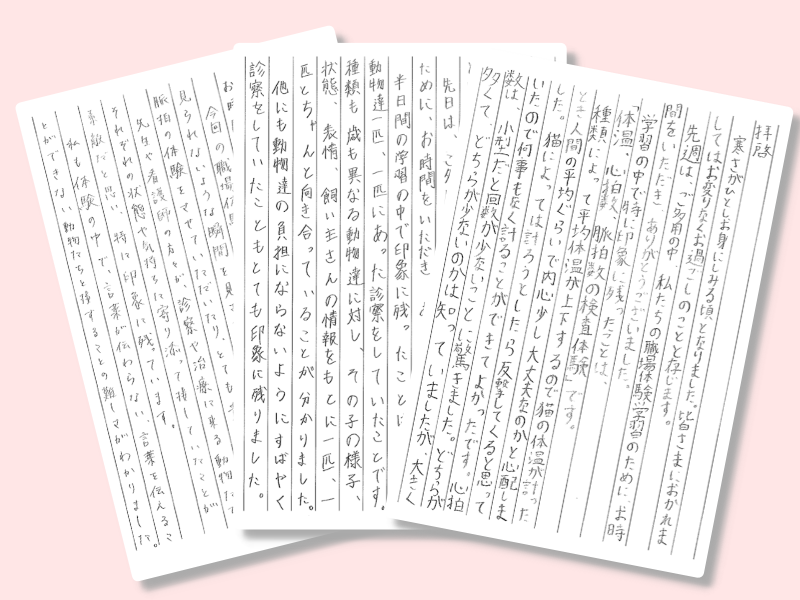 拝啓
寒さがひとしお身にしみる頃となりました。皆さまにおかれま
してはお変りなくお過ごしのことと存じます。
先週は、ご多用の中、私たちの職場体験学習のために、お時
間をいただき、ありがとうございました。
学習の中で特に印象に残ったことは、
「体温、心拍数、脈拍数の検査体験」です。
種類によって平均体温が上下するので猫の体温が計った
とき人間の平均ぐらいで内心少し大丈夫なのかと心配しま
した。猫によっては計ろうとしたら反撃してくると思って
いたので何事も無く計ることができてよかったです。心拍
数は、小型だと回数が少ないことに驚きました。どちらが
多くて、どちらが少ないのかは知っていましたが、大きく
先日は、
ために、お時間をいただき
半日間の学習の中で印象に残ったことに
動物達一匹、一匹にあった診察をしていたことです。
種類も歳も異なる動物達に対し、その子の様子、
状態、表情、飼い主さんの情報をもとに一匹、一
匹とちゃんと向き合っていることが分かりました。
他にも動物達の負担にならないようにすばやく
診察をしていたこともとても印象に残りました。
お時
今回の職場体
見られないような瞬間を見
脈拍の体験をさせていただいたり、とても
先生や看護師の方々が、診察や治療に来る動物たち
それぞれの状態や気持ちに寄り添って接していたことが
素敵だと思い、特に印象に残っています。
私も体験の中で、言葉が伝わらない、言葉を伝えるこ
とができない動物たちと接することの難しさがわかりました。